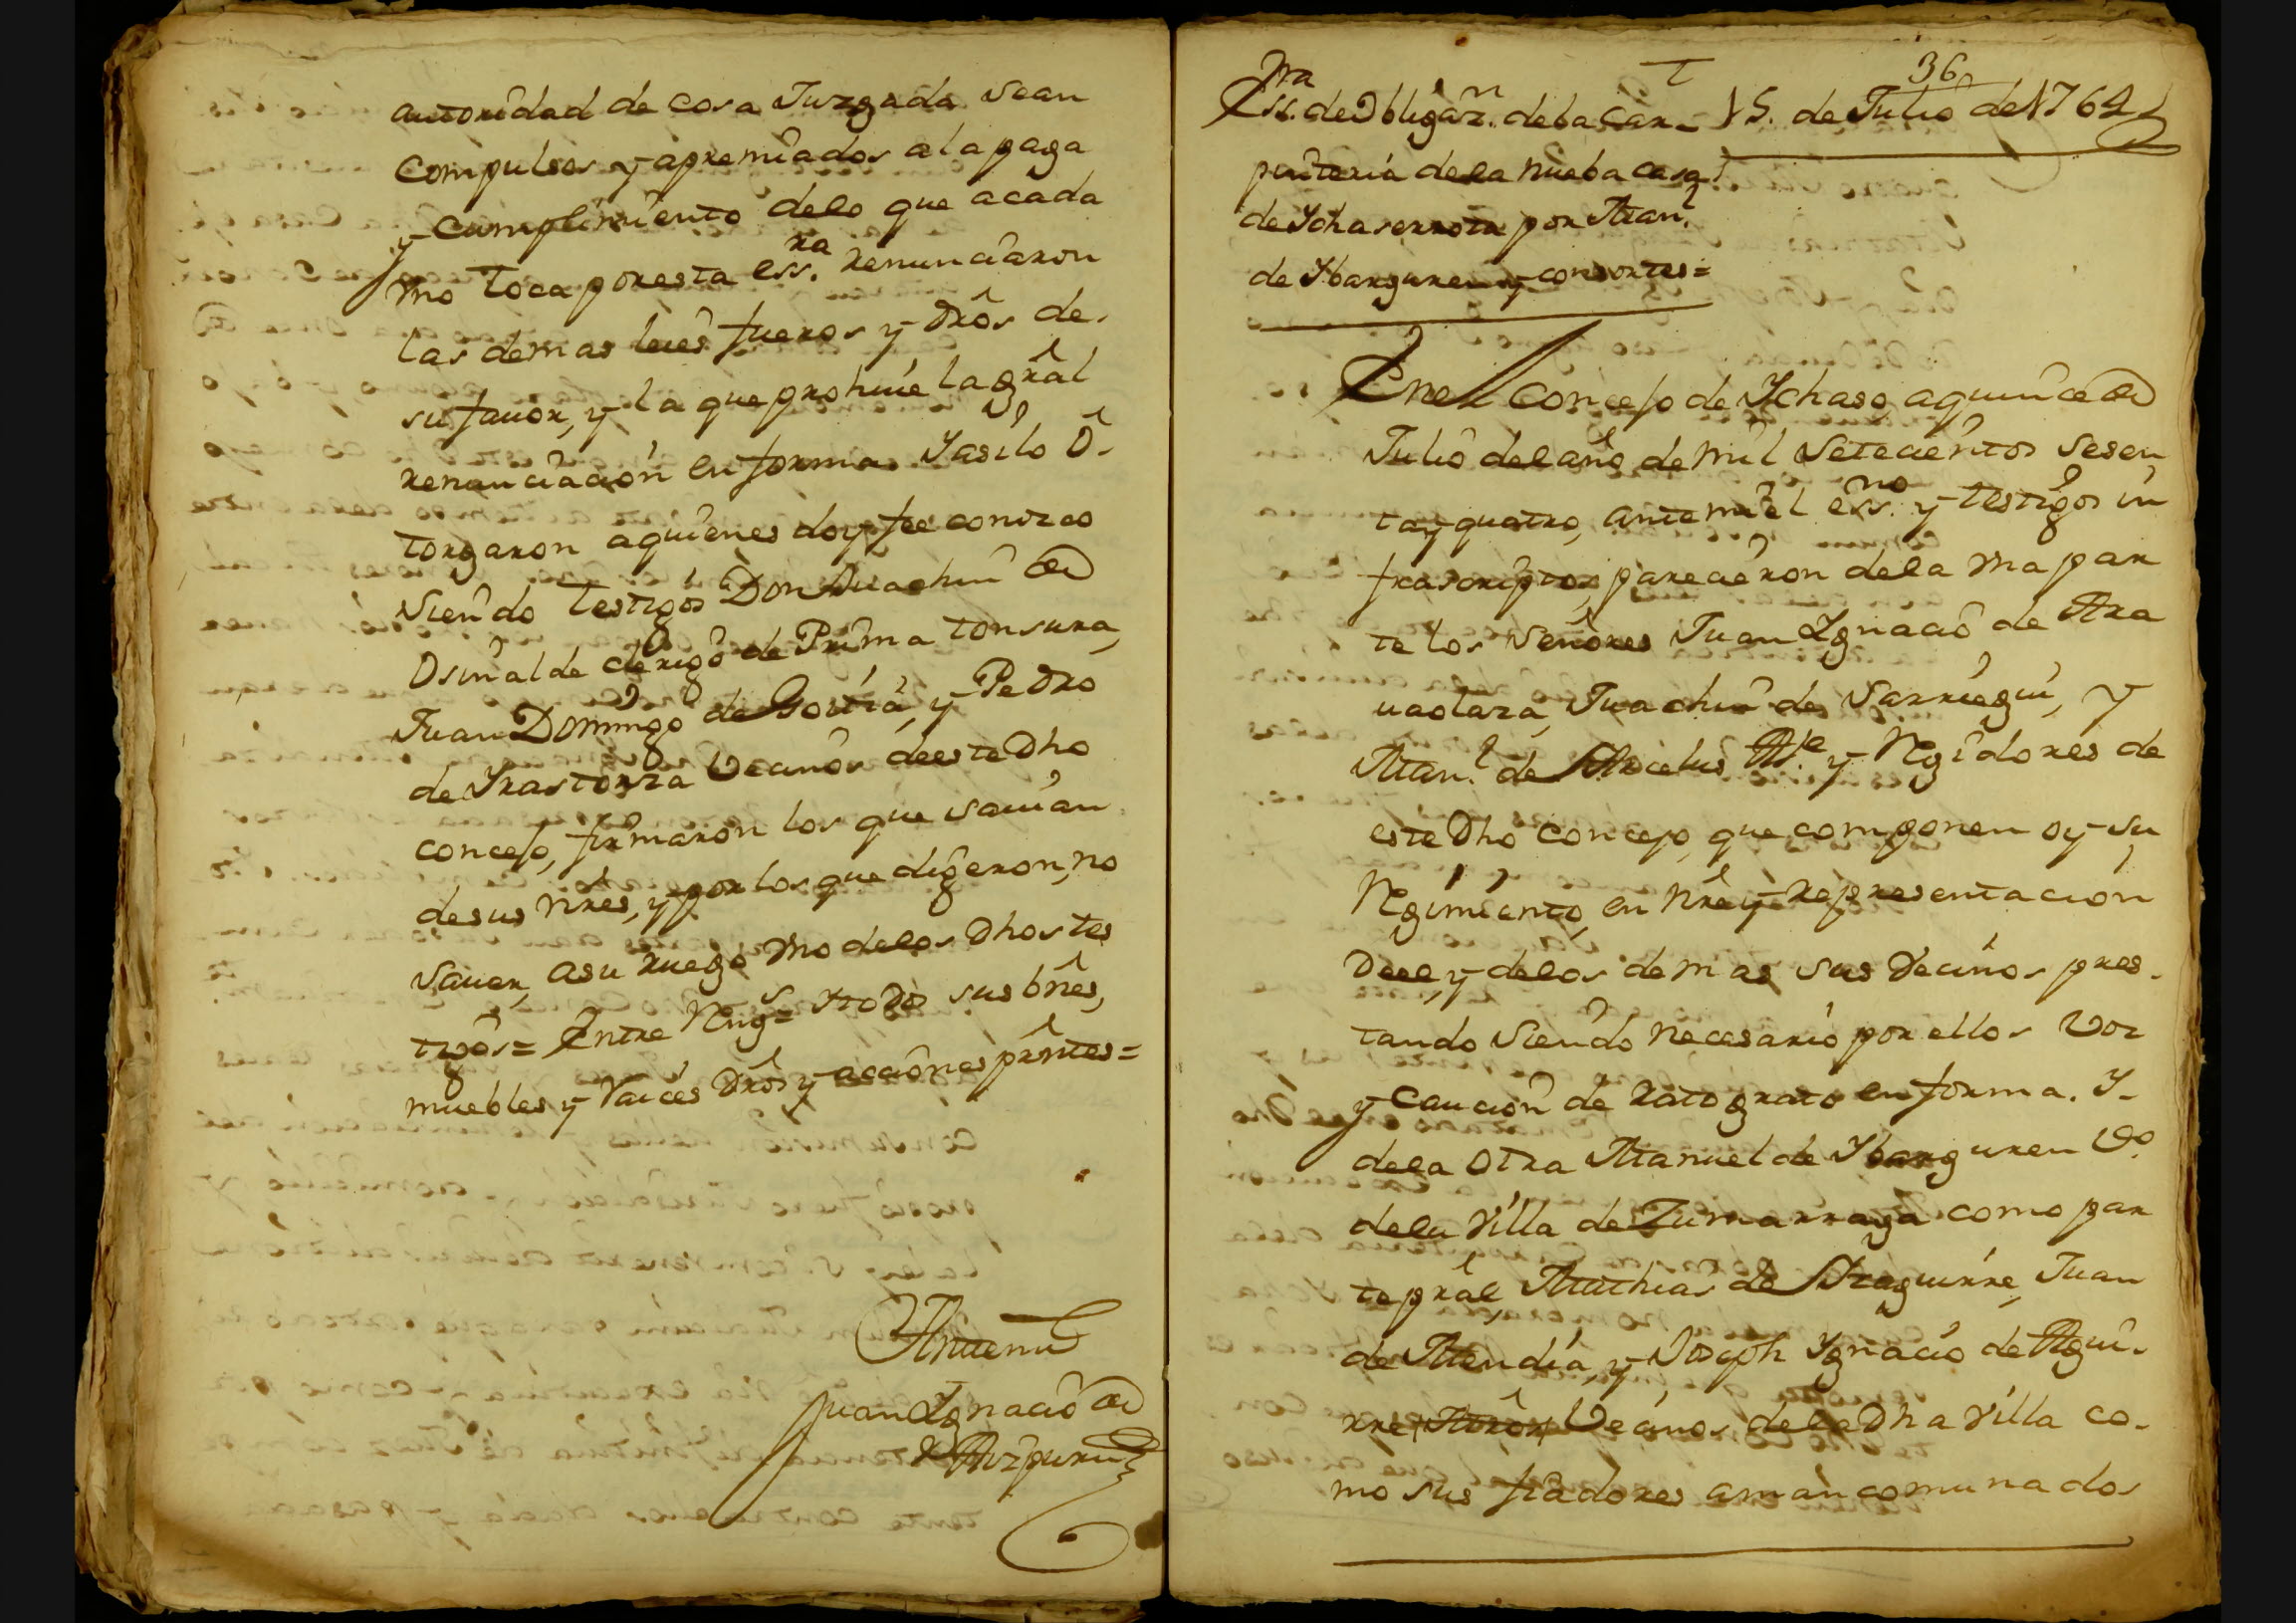 autoridad de cosa Juzgada sean
compulsos y apremiados a la paga
y cumplimiento delo que acada
vno toca por esta ess.ra renunciaron
las demas leies fueros y dros de
su fauor, y la que prohiuie la gral
renunciacion en forma. Y asi lo ô-
torgaron aquienes doy fee conozco
siendo testigos Don Juachin de
Osinalde clerigo de Prima tonsura,
Juan Domingo de Goitia, y Pedro
de Yrastorza Vecinos de este Dho
concejo, firmaron los que sauian
de sus nres, y por los que digeron, no
sauer, asu ruego vno delos Dhos tes
tigos = Entre Reng.s = todos sus bnes,
muebles y raices Dros y acciones prntes =
Antemi
Juan Ignacio de
Aizpuru
36
Ess.ra de Obligaz.n dela Car-
15. de Julio de 1764
pinteria dela nueba casa
de Ychaserrota por Man.l
de Ybarguren y consortes =
En el concejo de Ychaso aquince de
Julio del año de mil setecientos sesen
ta y quatro, ante mi el ess.no y testigos in
frascriptos, parecieron dela vna par
te los señores Juan Ignacio de Ara
uaolaza, Juachin de Sarriegui, y
Man.l de Arcelus Al.e y Regidores de
este Dho concejo, que componen oy su
Regimiento, en nre y representacion
Deel, y delos demas sus Vecinos pres-
tando siendo necesario por ellos Voz
y caucion de rato grato en forma. Y-
dela otra Manuel de Ybarguren V.o
dela Villa de Zumarraga como par
te pral, Mathias de Izaguirre, Juan
de Mendia, y Joseph Ygnacio de Agui-
rre Vecinos dela Dha Villa co-
mo sus fiadores amancomunados